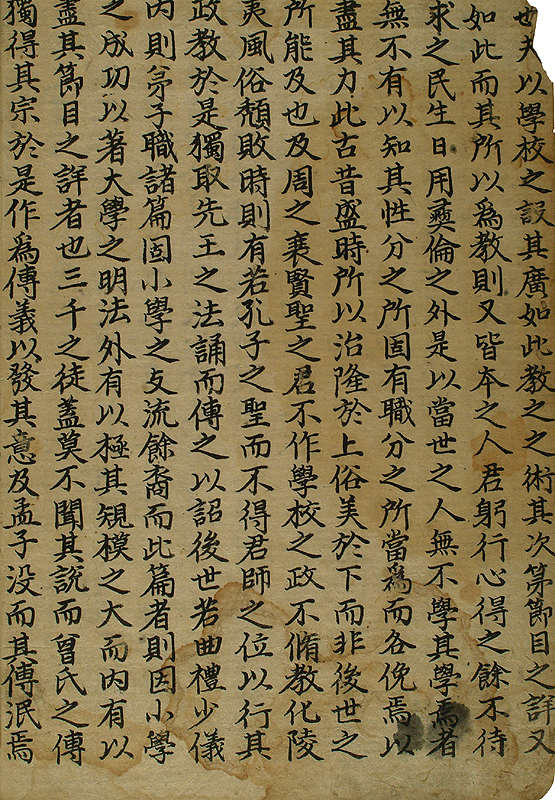 也夫以學校之設其廣如此教之之術其次第節目之詳又
如此而其所以爲教則又皆夲之人君躬行心得之餘不待
求之民生日用彜倫之外是以當世之人無不學其學焉者
無不有以知其性分之所固有職分之所當爲而各俛焉以
盡其力此古昔盛時所以治隆於上俗美於下而非後世之
所能及也及周之衰賢聖之君不作學校之政不脩教化陵
夷風俗頹敗時則有若孔子之聖而不得君師之位以行其
政教於是獨取先王之法誦而傳之以詔後世若曲禮少儀
内則弟子職諸篇固小學之支流餘裔而此篇者則因小學
之成功以著大學之明法外有以極其規模之大而内有以
盡其節目之詳者也三千之徒蓋莫不聞其説而曾氏之傳
獨得其宗於是作爲傳義以發其意及孟子没而其傳泯焉